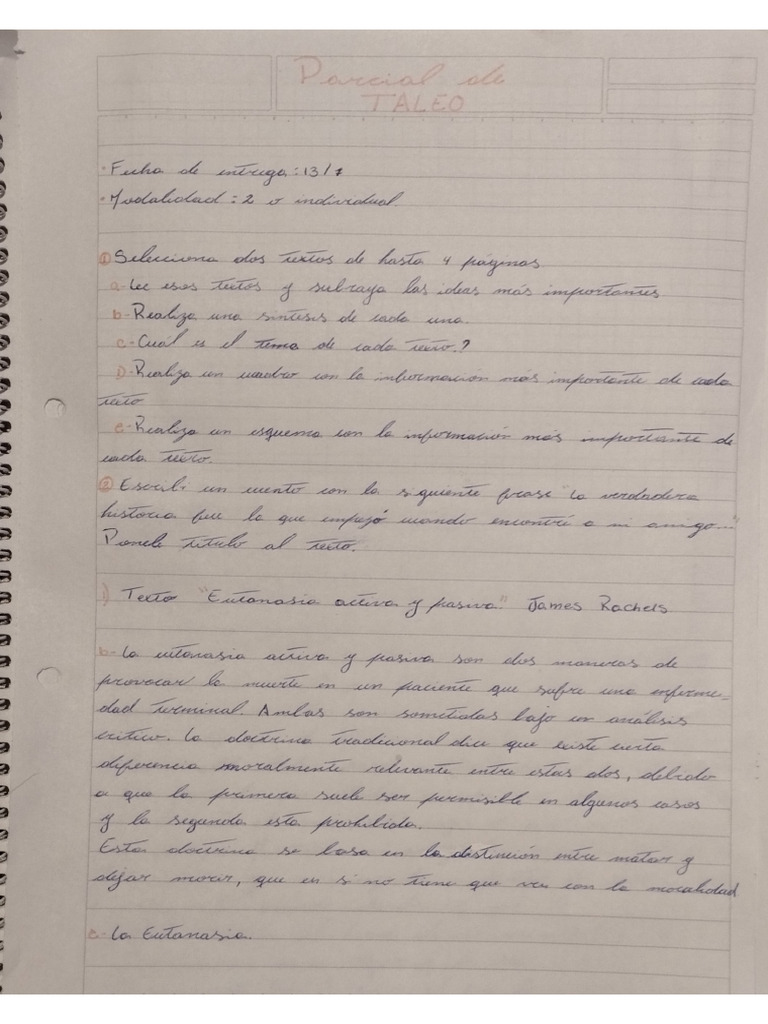 Parcial de
TALEO
• Fecha de entrega: 13/7
• Modalidad: 2 o individual.
① Selecciona dos textos de hasta 4 páginas
a- Lee esos textos y subraya las ideas más importantes
b- Realiza una sintesis de cada una.
c- Cuál es el tema de cada texto.?
D- Realiza un cuadro con la información más importante de cada
texto
e- Realiza un esquema con la información más importante de
cada texto.
② Escribi un cuento con la siguiente frase "La verdadera
historia fue la que empezó cuando encontré a mi amigo..."
Ponele título al texto.
1) Texto "Eutanasia activa y pasiva" James Rachels
b- La eutanasia activa y pasiva son dos maneras de
provocar la muerte en un paciente que sufre una enferme-
dad terminal. Ambas son sometidas bajo un análisis
critico. La doctrina tradicional dice que existe cierta
diferencia moralmente relevante entre estas dos, debido
a que la primera suele ser permisible en algunos casos
y la segunda esta prohibida.
Esta doctrina se basa en la distinción entre matar y
dejar morir, que en si no tiene que ver con la moralidad.
c- La Eutanasia.